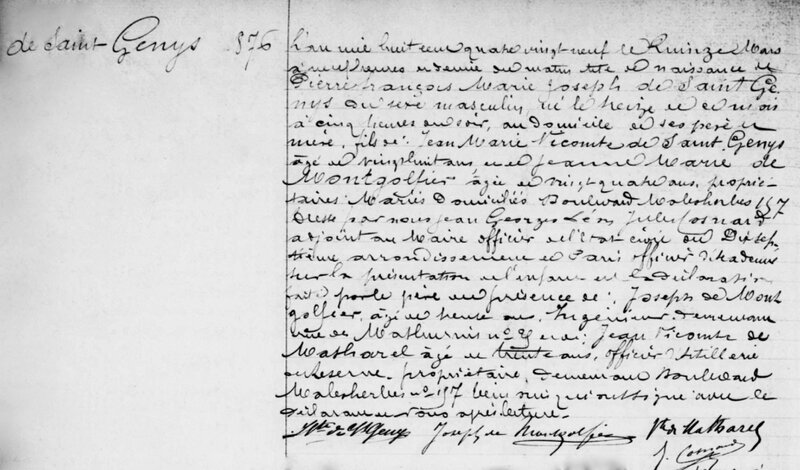 de Saint Genys 876
L'an mil huit cent quatre vingt neuf le Quinze Mars
à neuf heures et demie du matin Acte de naissance de
Pierre François Marie Joseph de Saint Ge
nys du sexe masculin, né le treize de ce mois
à cinq heures du soir, au domicile de ses père et
mère, fils de: Jean Marie Vicomte de Saint Genys
âgé de vingt huit ans et de Jeanne Marie de
Montgolfier âgée de vingt quatre ans, proprié-
taires Mariés Domiciliés Boulevard Malesherbes 157
Dressé par nous Jean Georges Léon Jules Cosnard
adjoint au Maire officier de l'Etat civil du Dixsep
tième arrondissement de Paris officier d'Académie
sur la présentation de l'enfant et la déclaration
faite par le père en présence de: Joseph de Mont
golfier, âgé de trente ans, Ingénieur, demeurant
rue des Mathurins no et de: Jean Vicomte de
Matharel âgé de trente ans, officier d'Artillerie
de Réserve, propriétaire, demeurant Boulevard
Malesherbes no 157 témoins qui ont signé avec le
déclarant et nous après lecture.
Vte de St Genys Joseph de Montgolfier Vte de Matharel
J. Cosnard